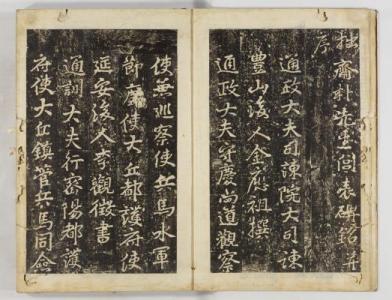 拙齋朴先生閭表碑銘并
序
通政大夫司諫院大司諫
豊山後人金應祖撰
通政大夫守慶尚道觀察
使兼巡察使兵馬水軍
節度使大丘都護府使
延安後人李觀徵書
通訓大夫行密陽都護
府使大丘鎮管兵馬同僉